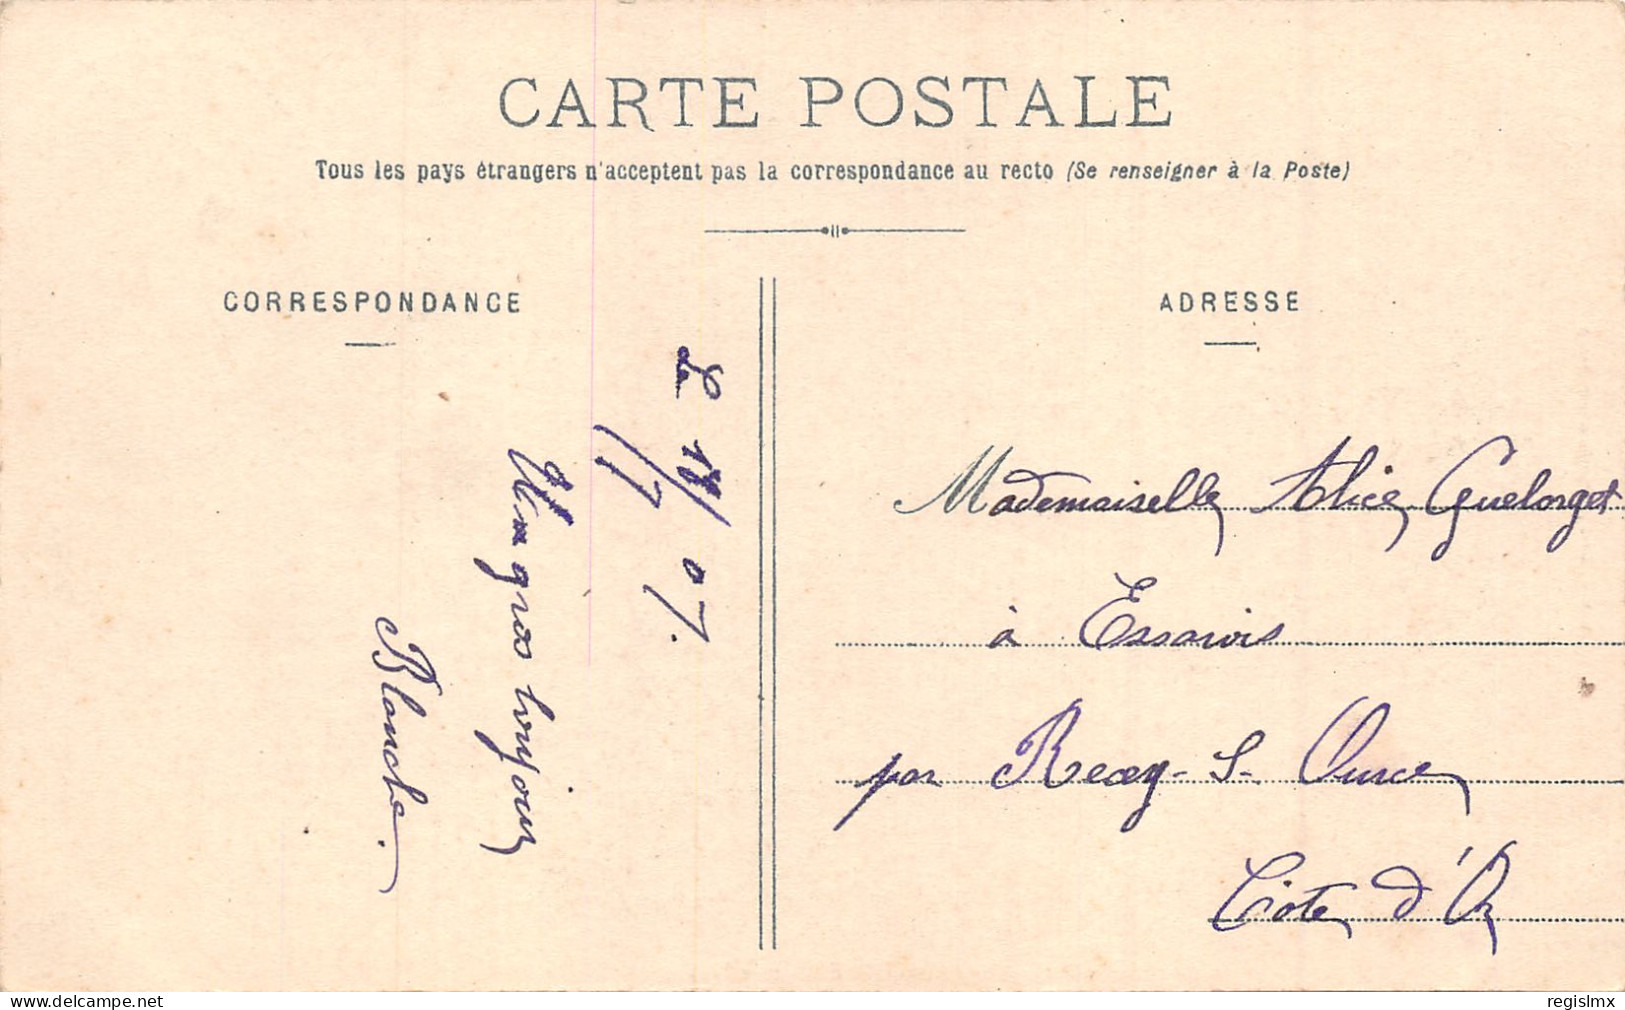 CARTE POSTALE
Tous les pays étrangers n'acceptent pas la correspondance au recto (Se renseigner à la Poste)
CORRESPONDANCE
Le 18/7/07.
Un gros toujours
Blanche.
ADRESSE
Mademoiselle Alice Guelorget
à Essarois
par Recey-s-Ource
Côte d'Or
delcampe.net
regislmx